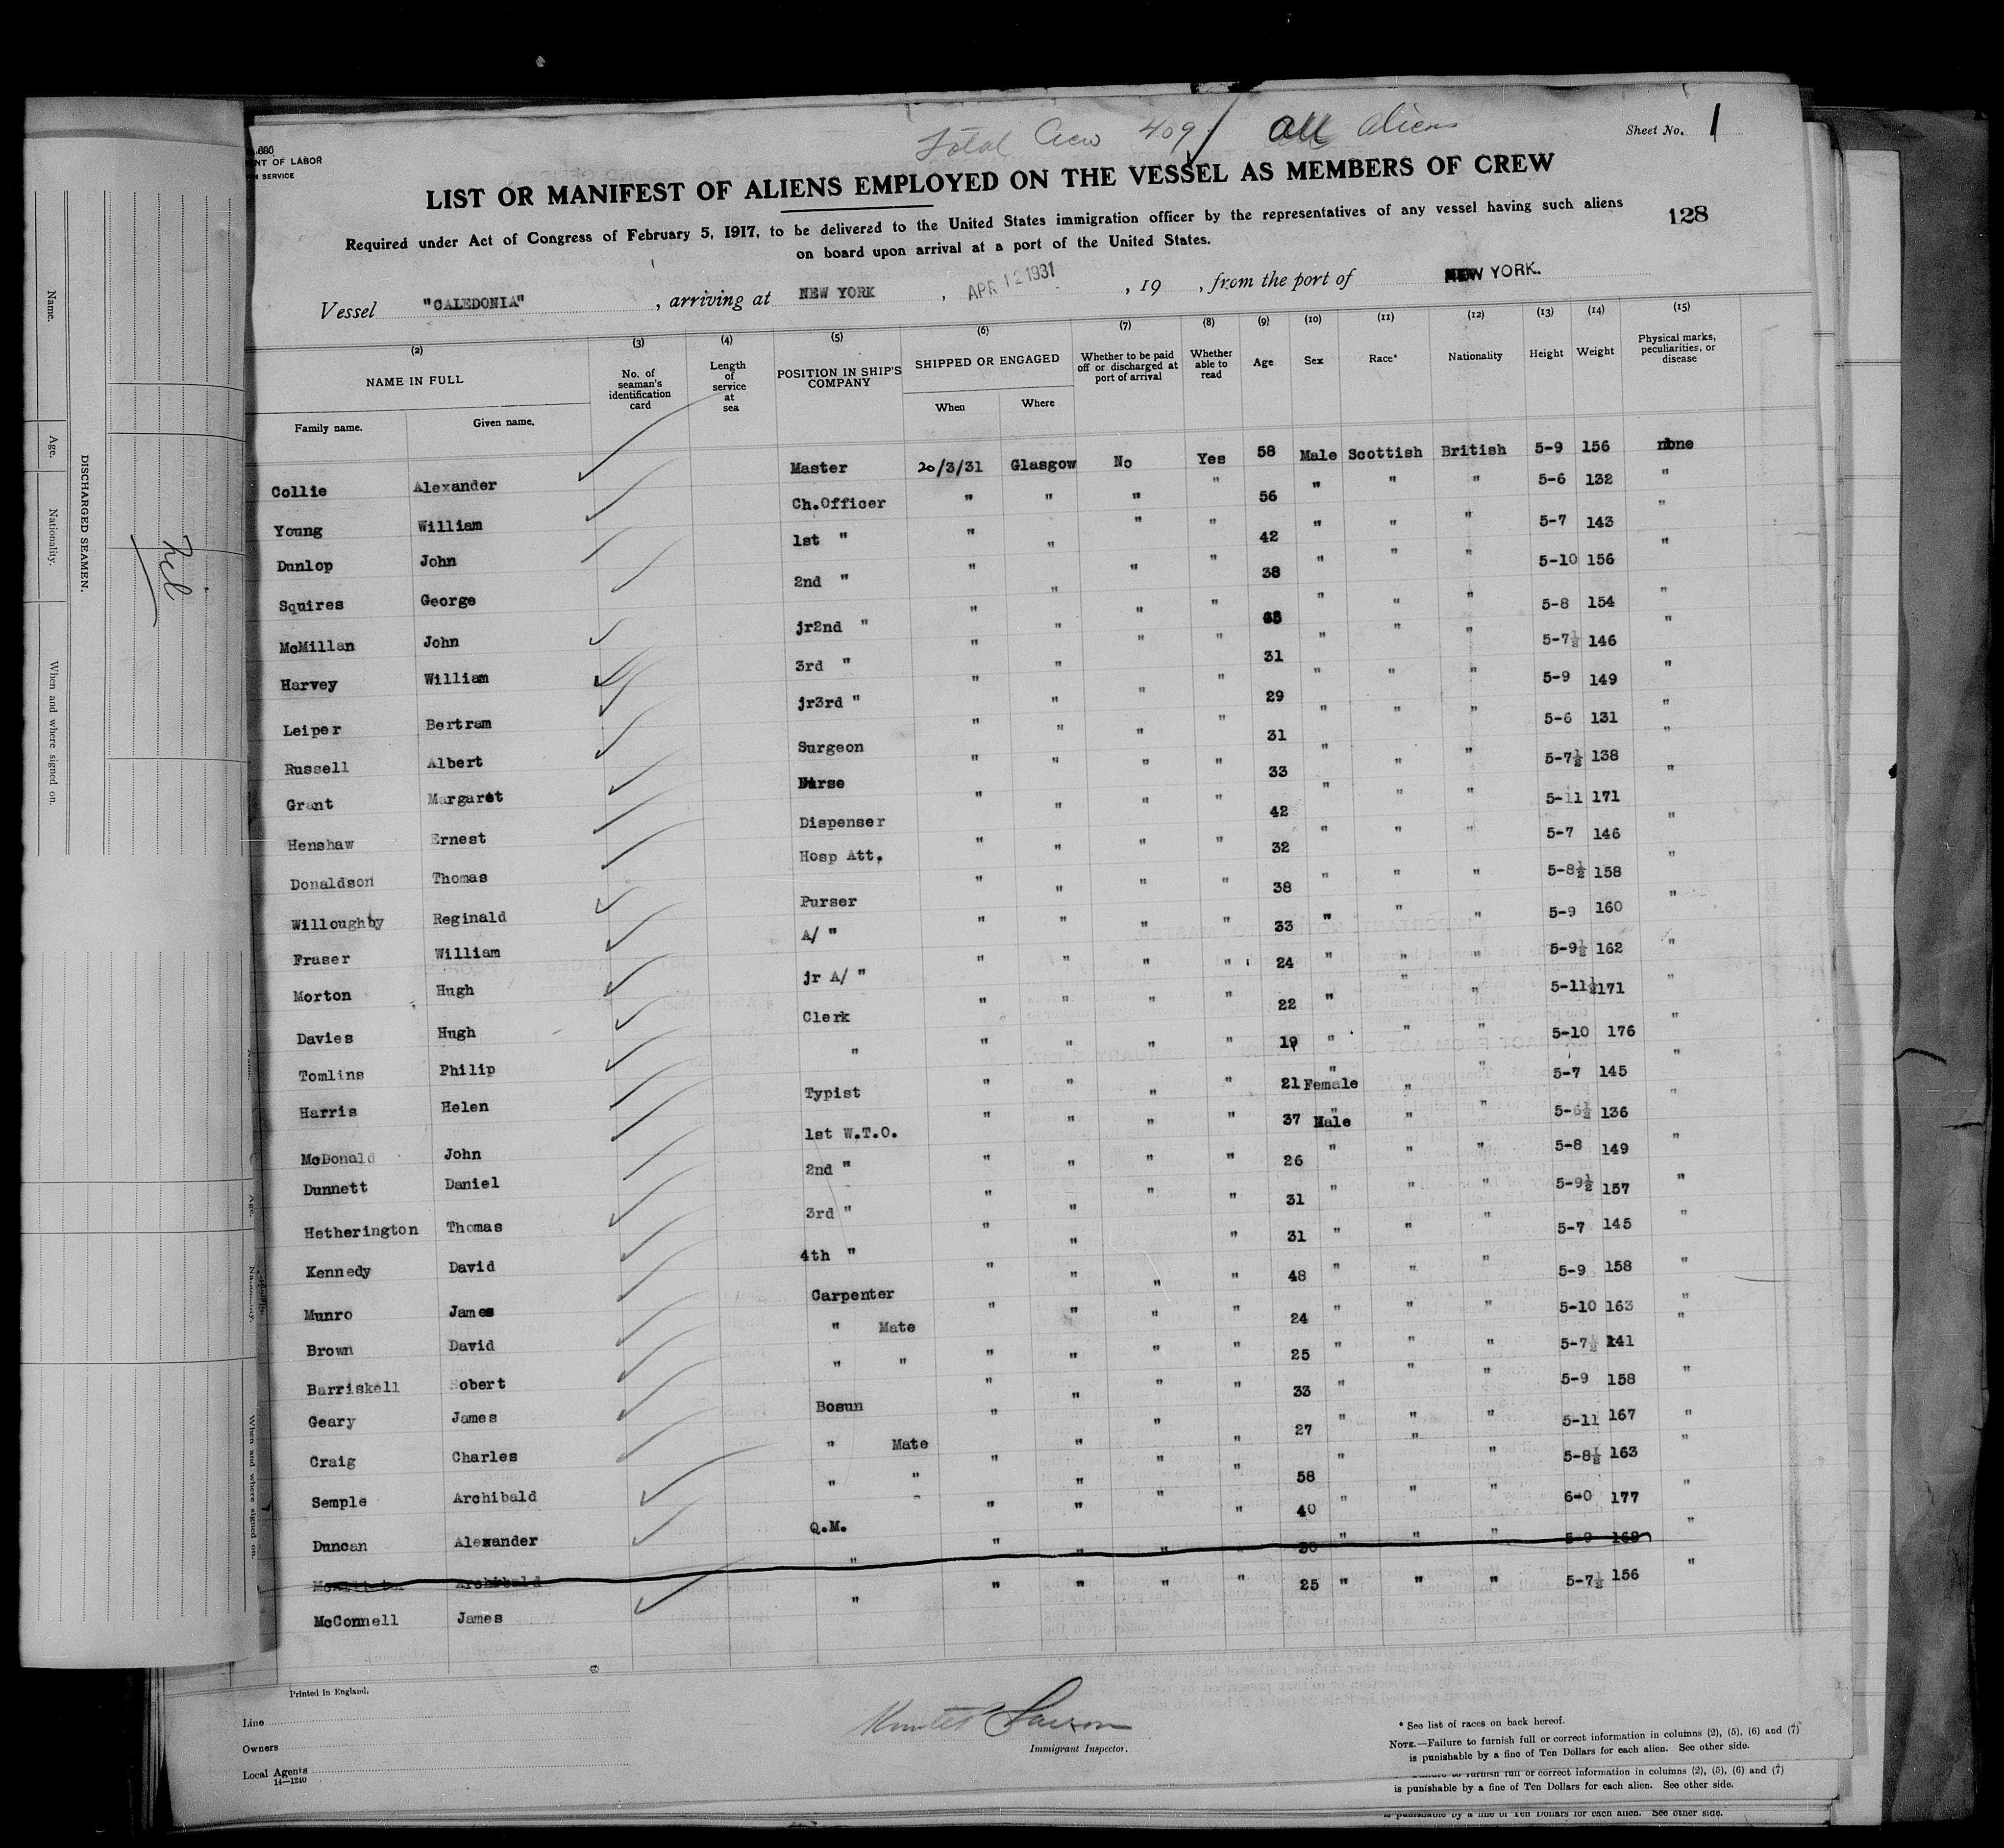 Total Crew 409 All aliens
Sheet No. 1
680
NT OF LABOR
N SERVICE
LIST OR MANIFEST OF ALIENS EMPLOYED ON THE VESSEL AS MEMBERS OF CREW
Required under Act of Congress of February 5, 1917, to be delivered to the United States immigration officer by the representatives of any vessel having such aliens
on board upon arrival at a port of the United States.
128
Vessel "CALEDONIA", arriving at NEW YORK, APR 12 1931, 19 , from the port of NEW YORK.
(2) (3) (4) (5) (6) (7) (8) (9) (10) (11) (12) (13) (14) (15)
NAME IN FULL
Family name. Given name.
No. of seaman's identification card
Length of service at sea
POSITION IN SHIP'S COMPANY
SHIPPED OR ENGAGED
When Where
Whether to be paid off or discharged at port of arrival
Whether able to read
Age
Sex
Race*
Nationality
Height
Weight
Physical marks, peculiarities, or disease
Collie Alexander Master 20/3/31 Glasgow No Yes 58 Male Scottish British 5-9 156 none
Young William Ch.Officer " " " " 56 " " " 5-6 132 "
Dunlop John 1st " " " " " 42 " " " 5-7 143 "
Squires George 2nd " " " " " 38 " " " 5-10 156 "
McMillan John jr2nd " " " " " " " " 5-8 154 "
Harvey William 3rd " " " " " 31 " " " 5-7½ 146 "
Leiper Bertram jr3rd " " " " " 29 " " " 5-9 149 "
Russell Albert Surgeon " " " " 31 " " " 5-6 131 "
Grant Margaret Nurse " " " " 33 " " " 5-7½ 138 "
Henshaw Ernest Dispenser " " " " 42 " " " 5-11 171 "
Donaldson Thomas Hosp Att. " " " " 32 " " " 5-7 146 "
Willoughby Reginald Purser " " " " 38 " " " 5-8½ 158 "
Fraser William A/ " " " " " 33 " " " 5-9 160 "
Morton Hugh jr A/ " " " " " 24 " " " 5-9½ 162 "
Davies Hugh Clerk " " " " 22 " " " 5-11½ 171 "
Tomlins Philip " " " " " 19 " " " 5-10 176 "
Harris Helen Typist " " " " 21 Female " " 5-7 145 "
McDonald John 1st W.T.O. " " " " 37 Male " " 5-6½ 136 "
Dunnett Daniel 2nd " " " " " 26 " " " 5-8 149 "
Hetherington Thomas 3rd " " " " " 31 " " " 5-9½ 157 "
Kennedy David 4th " " " " 31 " " " 5-7 145 "
Munro James Carpenter " " " " 48 " " " 5-9 158 "
Brown David " Mate " " " " 24 " " " 5-10 163 "
Barriskell Robert " " " " " " 25 " " " 5-7½ 141 "
Geary James Bosun " " " " 33 " " " 5-9 158 "
Craig Charles " Mate " " " " 27 " " " 5-11 167 "
Semple Archibald " " " " " " 58 " " " 5-8½ 163 "
Duncan Alexander Q.M. " " " " 40 " " " 6-0 177 "
Archibald " " " " " 30 " " " 5-9 "
McConnell James " " " " " 25 " " " 5-7½ 156 "
Printed in England.
Line
Owners
Local Agents
14—1240
Immigrant Inspector.
* See list of races on back hereof.
NOTE.—Failure to furnish full or correct information in columns (2), (5), (6) and (7)
is punishable by a fine of Ten Dollars for each alien. See other side.
Failure to furnish full or correct information in columns (2), (5), (6) and (7)
is punishable by a fine of Ten Dollars for each alien. See other side.
is punishable by a fine of Ten Dollars for each alien. See other side.
DISCHARGED SEAMEN.
Name. Age. Nationality. When and where signed on.
Nil
Age. When and where signed on.